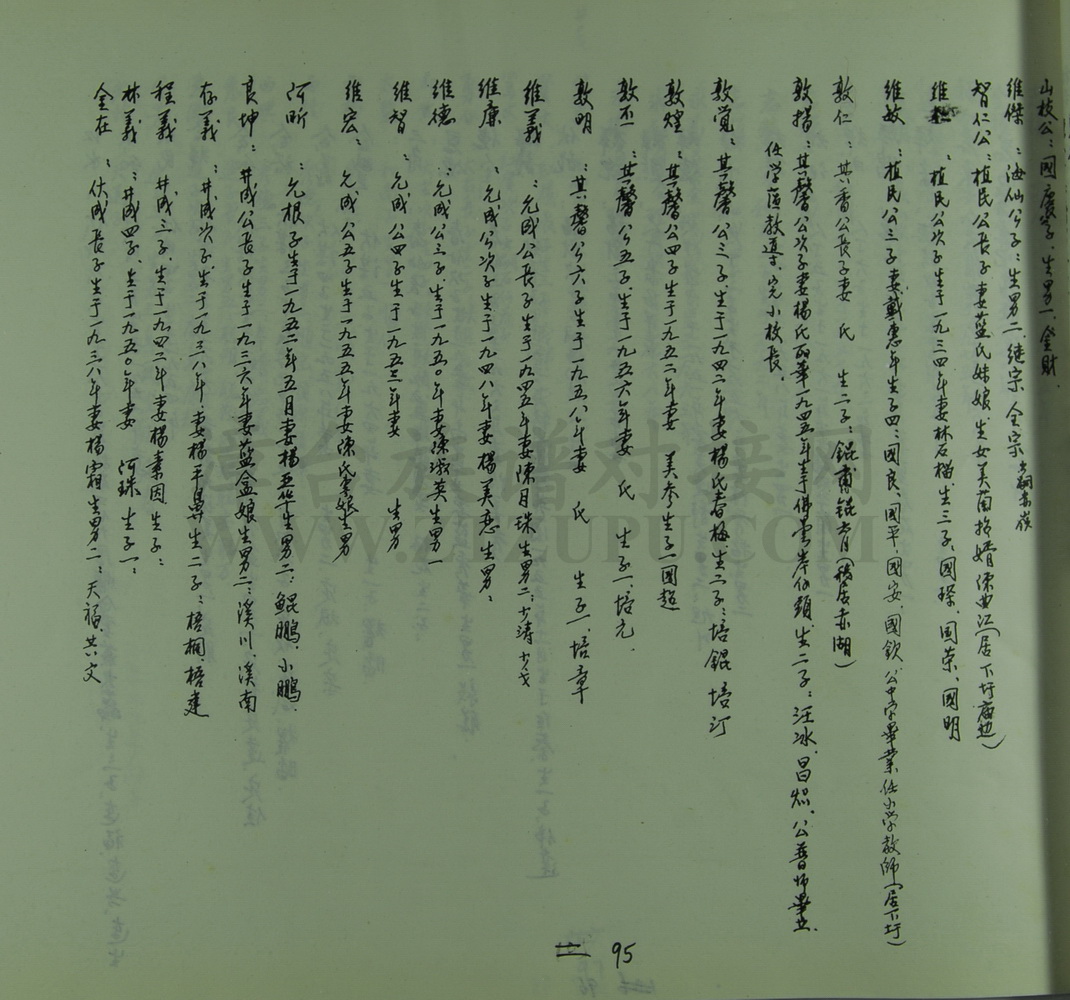 山枝公：國慶子，生男一，金財．
維傑：海仙公子：生男二，继宗 全宗
智仁公：植民公長子妻藍氏妹娘生女美蘭招婿陳曲江(居下圩庙边)
維：植民公次子生于一九三四年妻林石榴．生三子，國琛、国荣、國明
維敏：植民公三子妻戴惠年生子四：國良、國平，國安、國欽．公中学畢業任小学教師(居下圩)
敦仁：其香公長子妻 氏 生二子：錕 錕(移居赤湖)
敦措：其馨公次子妻楊氏 華一九四五年 佛曇岸仔頭．生二子：汪冰，昌 ．公普师畢业．
任学区教导．完小校長．
敦覚：其馨公三子．生于一九四二年妻楊氏春梅．生二子：培錕 培汀
敦煌：其馨公四子生于一九五二年妻 美 生子一國超
敦丕：其馨公五子．生于一九五六年妻 氏 生子一：培元．
敦明：其馨公六子生于一九五八年妻 氏 生子一．培章
維義：允成公長子生于一九四五年妻陳月珠生男二：少涛少戈
維廉：允成公次子生于一九四八年妻楊美恋生男：
維德：允成公三子．生于一九五〇年妻陳 英生男一
維智：允成公四子生于一九五三年妻 生男
維宏：允成公五子生于一九五五年妻陳氏 娘生男
河昕：允根子生于一九五二年五月妻楊亚华生男二：鯤鵬，小鵬．
良坤：井成公長子生于一九三六年妻藍盒娘生男二：溪川，溪南
存義：井成次子生于一九三八年，妻楊平 生二子：梧桐．梧建
程義 井成三子．生于一九四二年妻楊素因生子：
林義：井成四子．生于一九五〇年妻 河珠 生子一：
金在：伏成長子生于一九三八年妻楊霜生男二：天福．共文
WWW.ZTZUPU.COM
漳台族谱对接网
95